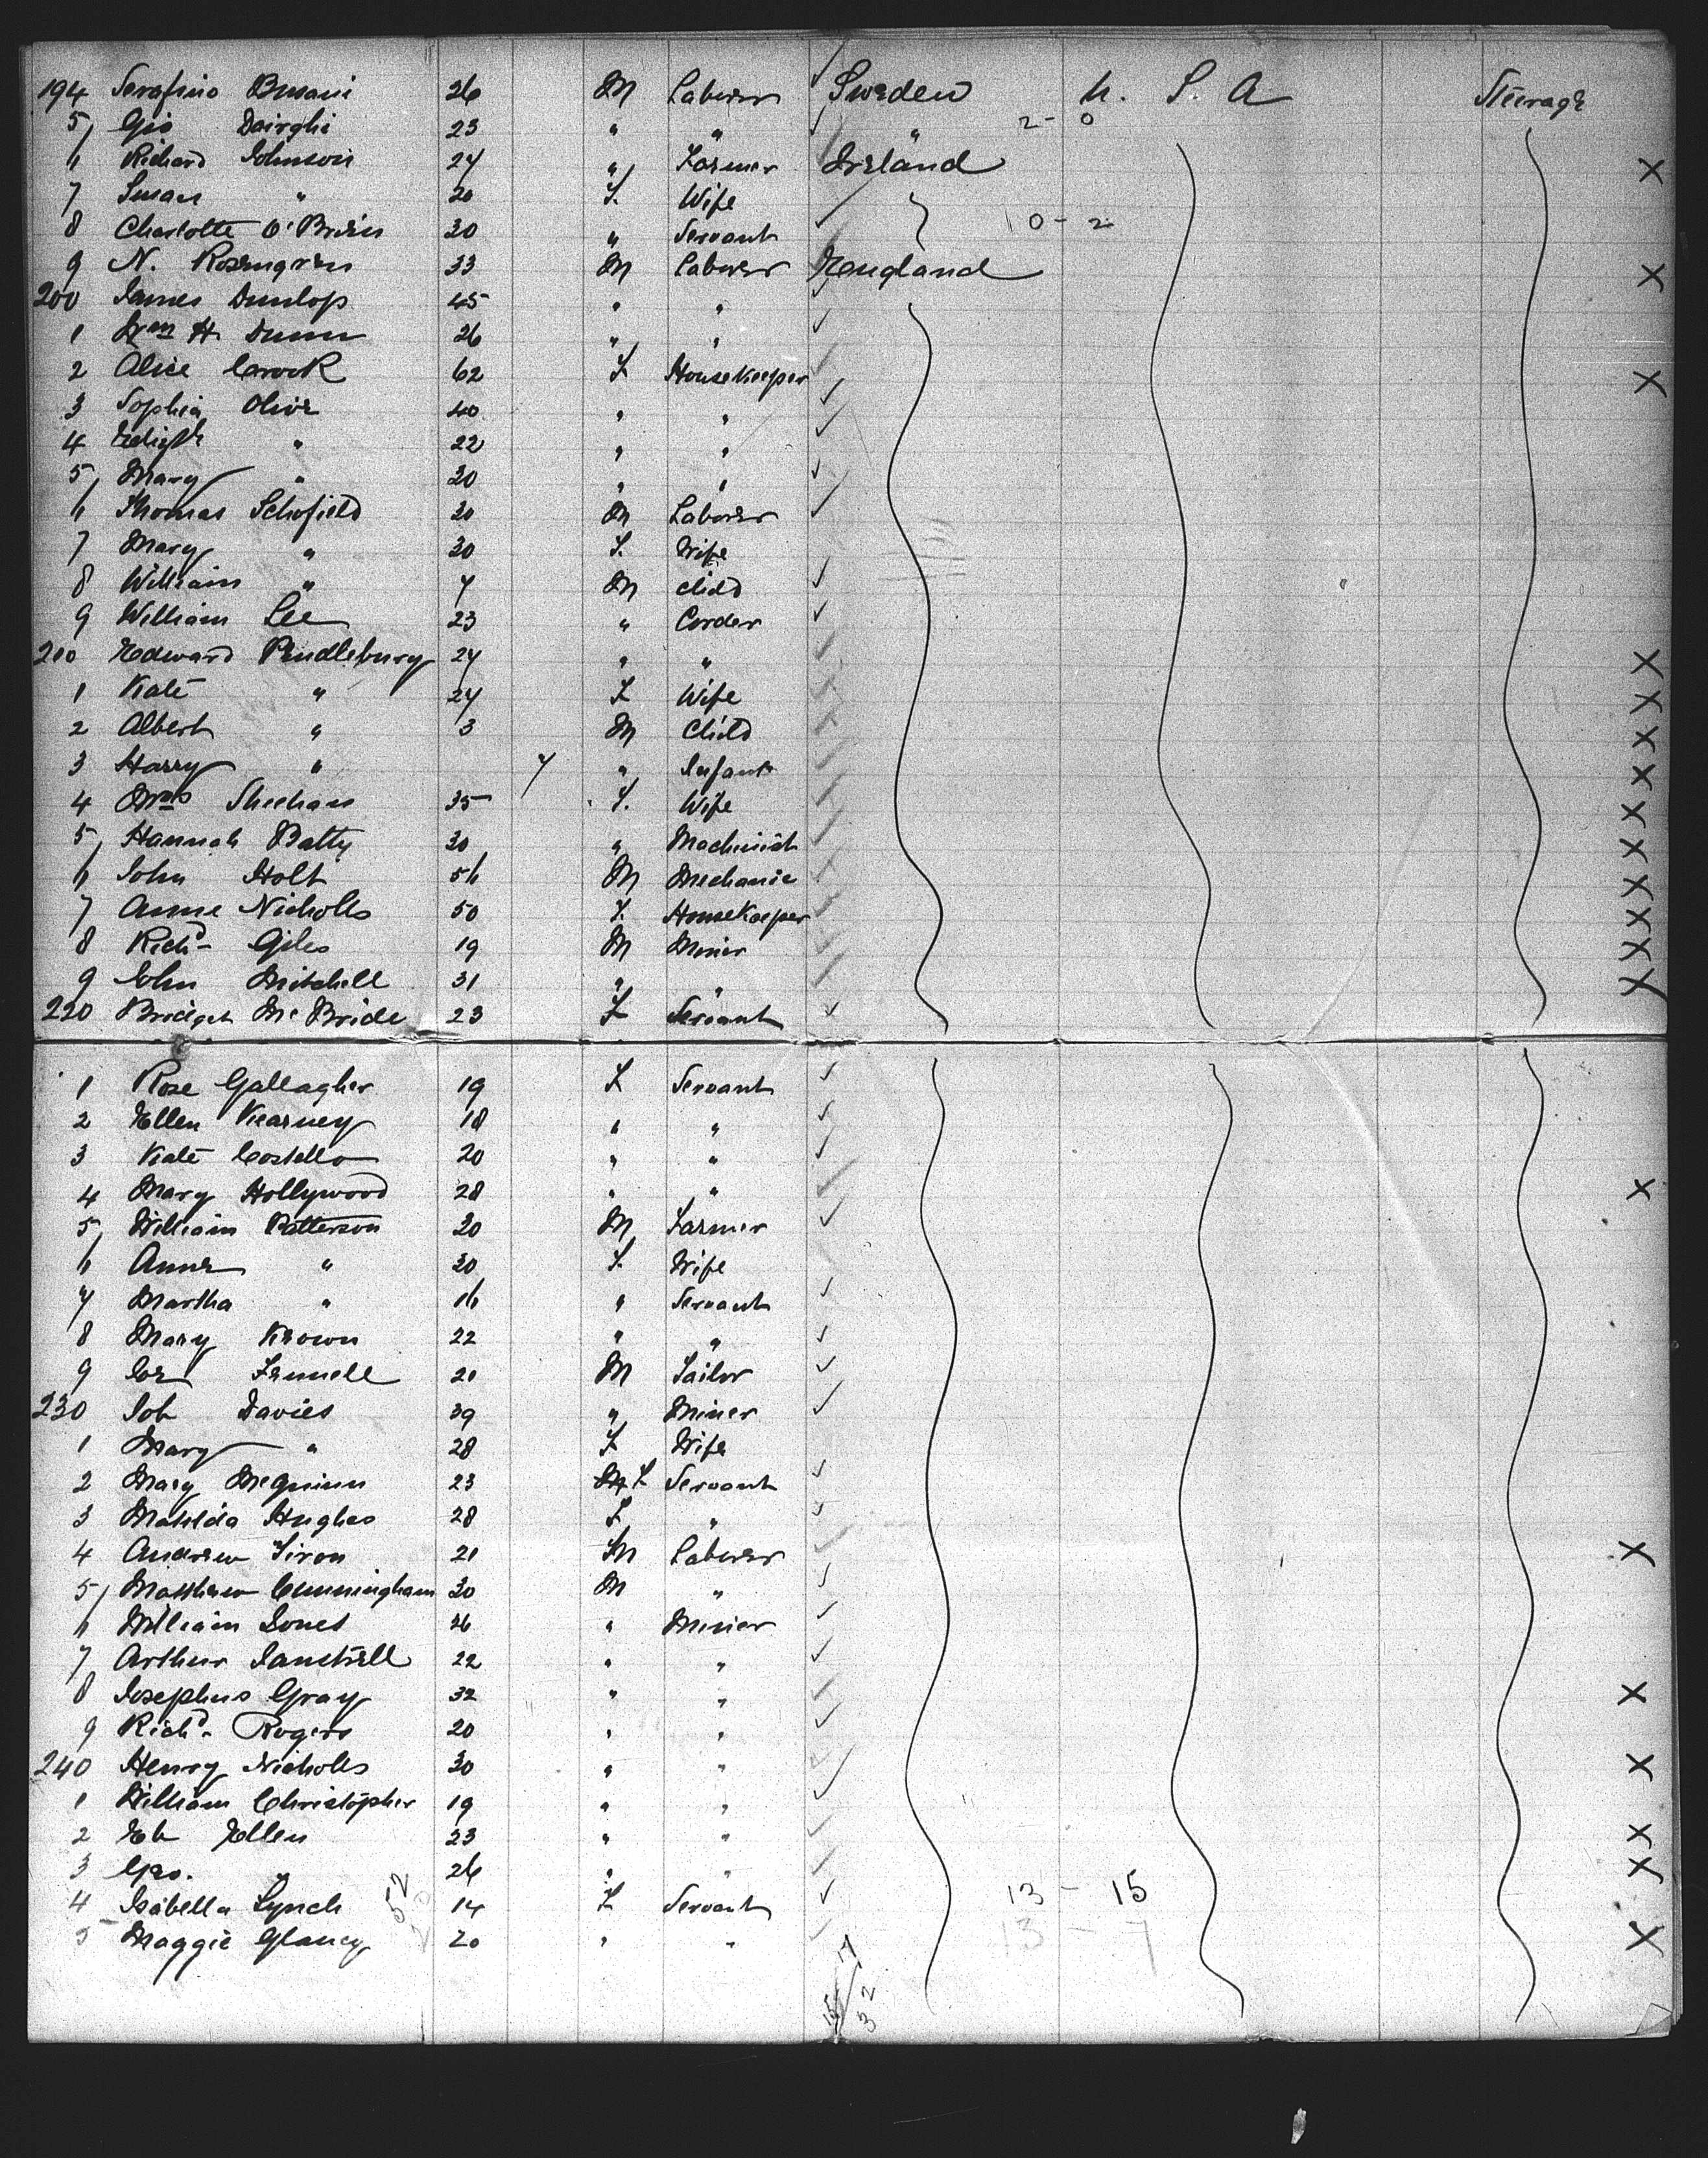 194 Serafino Busani 26 M Laborer Sweden U. S. A Steerage
5 Gio Dairghi 23 " " " 2 - 0
6 Richard Johnson 24 " Farmer Ireland X
7 Susan " 20 F. Wife
8 Charlotte O'Brien 30 " Servant 0 - 2
9 N. Rosengren 33 M Laborer England X
200 James Dunlop 45 " "
1 Wm H. Dunn 26 " "
2 Alice Crook 62 F Housekeeper X
3 Sophia Olive 40 " "
4 " 22 " "
5 Mary " 20 " "
6 Thomas Schofield 30 M Laborer
7 Mary " 30 F. Wife
8 William " 7 M child
9 William Lee 23 " Corder
210 Edward Pendlebury 24 " " X
1 Kate " 24 F Wife X
2 Albert " 3 M Child X
3 Harry " 7 " Infant X
4 Mrs Sheehan 35 F. Wife X
5 Hannah Batty 30 " Machinist X
6 John Holt 56 M Mechanic X
7 Anne Nicholls 50 F. Housekeeper X
8 Richd Giles 19 M Miner X
9 John Mitchell 31 " " X
220 Bridget Mc Bride 23 F Servant
1 Rose Gallagher 19 F Servant
2 Ellen Kearney 18 " "
3 Kate Costello 20 " "
4 Mary Hollywood 28 " " X
5 William Patterson 30 M Farmer
6 Anne " 30 F. Wife
7 Martha " 16 " Servant
8 Mary Krown 22 " "
9 Jos Fennell 21 M Tailor
230 Job Davies 39 " Miner
1 Mary " 28 F Wife
2 Mary McQuinn 23 M F Servant
3 Matilda Hughes 28 F "
4 Andrew Tiron 21 M Laborer X
5 Matthew Cunningham 30 M "
6 William Jones 26 " Miner
7 Arthur 22 " "
8 Josephus Gray 32 " " X
9 Richd Rogers 20 " "
240 Henry Nicholls 30 " " X
1 William Christopher 19 " "
2 Eb Ellen 23 " " X
3 Geo. " 26 " " X
4 Isabella Lynch 52 14 F Servant 13 - 15
5 Maggie Glancy 20 " " 13 - 7 X
15 / 17
32